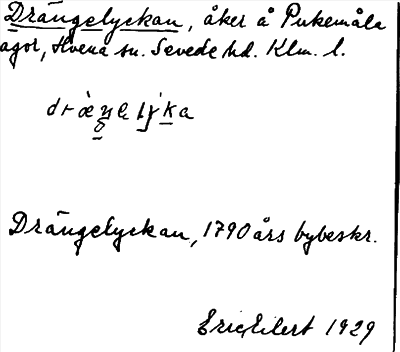 Drängelyckan, åker å Pukemåla
agor, Hvena sn. Sevede hd. Klm. l.
Drängelyckan, 1790 års bybeskr.
Eric Eilert 1929